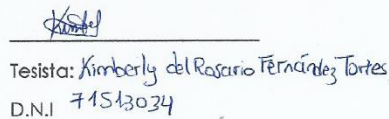 Kimbel
Tesista: Kimberly del Rosario Fernández Torres
D.N.I 71513034